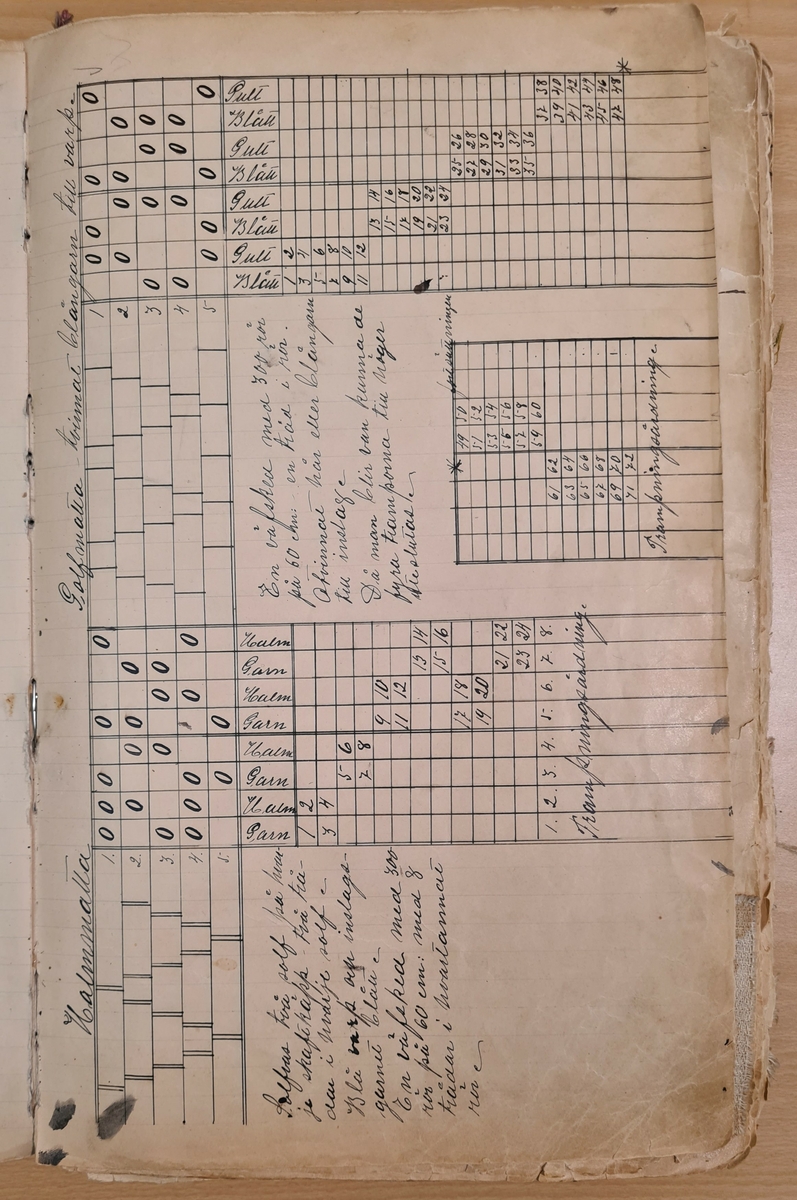 Halmmatta
1.
2.
3.
4.
5.
Solfvas två solf på
je skaftkäpp. två trå-
dar i hvarje solf
Blå varp och inslags-
garnet blått
En väfsked med 300
rör på 60 cm: med 2
trådar i hvartannat
rör
Garn Halm Garn Halm Garn Halm Garn Halm
1 2
3 4
5 6
7 8
9 10
11 12
13 14
15 16
17 18
19 20
21 22
23 24
1. 2. 3. 4. 5. 6. 7. 8.
Trampningsordning.
Golfmatta tvinnat blångarn till varp.
1
2
3
4
5
En väfsked med 300 rör
på 60 cm: en tråd i rör.
Otvinnat hår eller blångarn
till inslag
Då man blir van kunna de
fyra tramporna till höger
uteslutas
Blått Gult Blått Gult Blått Gult Blått Gult
1 2
3 4
5 6
7 8
9 10
11 12
13 14
15 16
17 18
19 20
21 22
23 24
25 26
27 28
29 30
31 32
33 34
35 36
37 38
39 40
41 42
43 44
45 46
47 48
*
*
49 50
51 52
53 54
55 56
57 58
59 60
61 62
63 64
65 66
67 68
69 70
71 72
Trampningsordning.